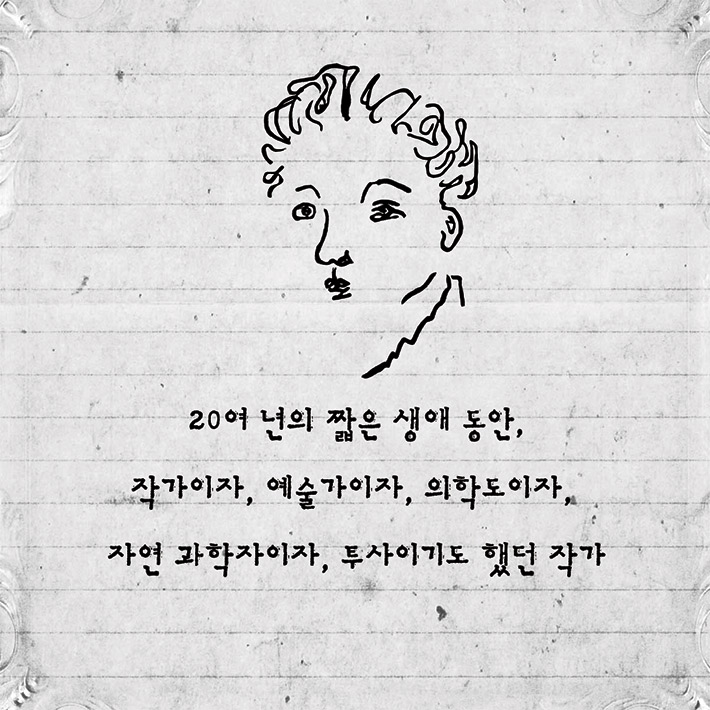 20여 년의 짧은 생애 동안,
작가이자, 예술가이자, 의학도이자,
자연 과학자이자, 투사이기도 했던 작가